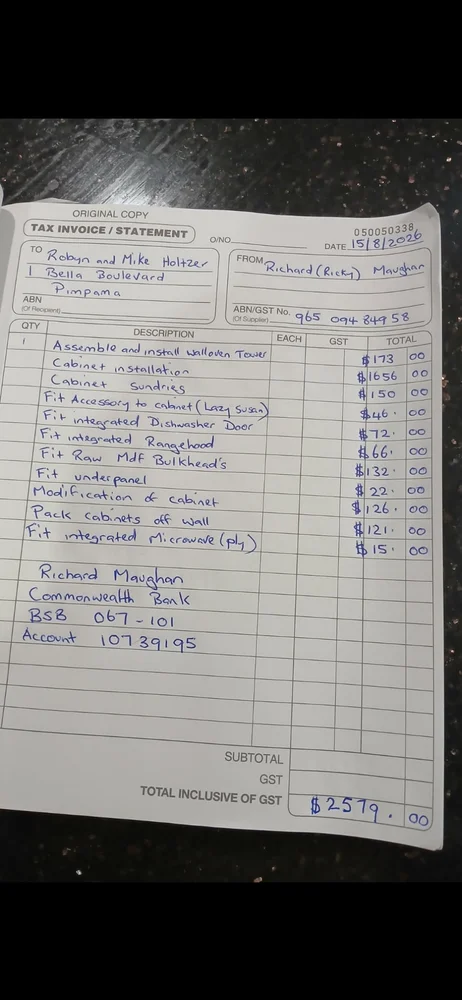 ORIGINAL COPY
TAX INVOICE / STATEMENT
O/NO
050050338
DATE 15/8/2026
TO Robyn and Mike Holtzer
1 Bella Boulevard
Pimpama
ABN
(Of Recipient)
FROM Richard (Ricky) Maughan
ABN/GST No. 965 094 849 58
(Of Supplier)
QTY DESCRIPTION EACH GST TOTAL
1 Assemble and install walloven Tower $173 00
Cabinet installation $1656 00
Cabinet Sundries $150 00
Fit Accessory to cabinet (Lazy Susan) $46. 00
Fit integrated Dishwasher Door $72. 00
Fit integrated Rangehood $66. 00
Fit Raw Mdf Bulkhead's $132. 00
Fit underpanel $22. 00
Modification of cabinet $126. 00
Pack cabinets off wall $121. 00
Fit integrated Microwave (ply) $15. 00
Richard Maughan
Commonwealth Bank
BSB 067-101
Account 10739195
SUBTOTAL
GST
TOTAL INCLUSIVE OF GST $2579. 00